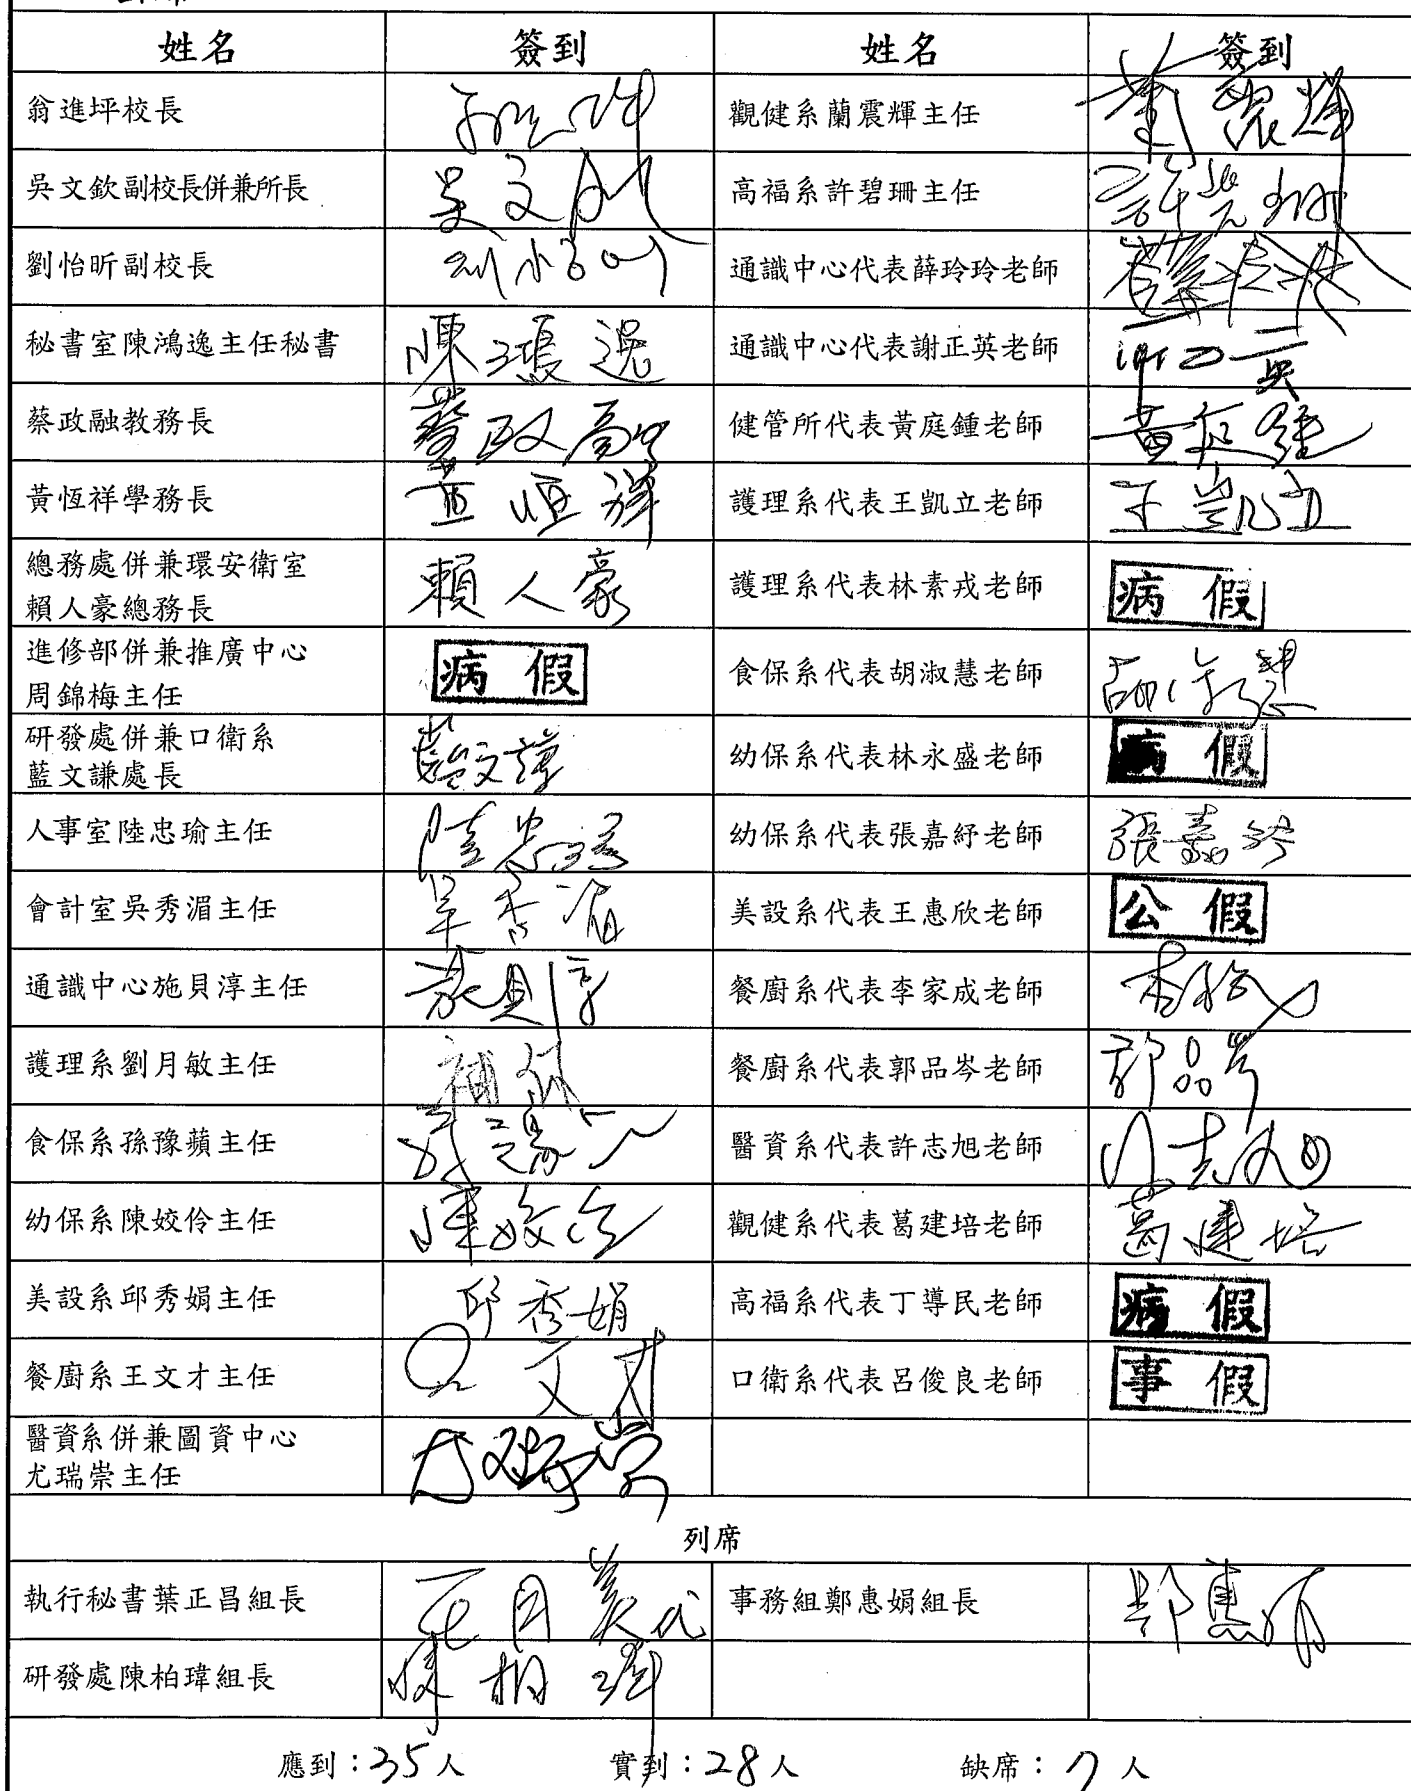 姓名 簽到 姓名 簽到
翁進坪校長 觀健系蘭震輝主任
吳文欽副校長併兼所長 吳文欽 高福系許碧珊主任 許碧珊
劉怡昕副校長 通識中心代表薛玲玲老師
秘書室陳鴻逸主任秘書 陳鴻逸 通識中心代表謝正英老師
蔡政融教務長 蔡政融 健管所代表黃庭鍾老師 黃庭鍾
黃恆祥學務長 黃恒祥 護理系代表王凱立老師 王凱立
總務處併兼環安衛室
賴人豪總務長 賴人豪 護理系代表林素戎老師 病假
進修部併兼推廣中心
周錦梅主任 病假 食保系代表胡淑慧老師 胡淑慧
研發處併兼口衛系
藍文謙處長 藍文謙 幼保系代表林永盛老師 病假
人事室陸忠瑜主任 陸忠瑜 幼保系代表張嘉紓老師 張嘉紓
會計室吳秀湄主任 吳秀湄 美設系代表王惠欣老師 公假
通識中心施貝淳主任 施貝淳 餐廚系代表李家成老師
護理系劉月敏主任 餐廚系代表郭品岑老師 郭品岑
食保系孫豫蘋主任 醫資系代表許志旭老師 許志旭
幼保系陳姣伶主任 陳姣伶 觀健系代表葛建培老師 葛建培
美設系邱秀娟主任 邱秀娟 高福系代表丁導民老師 病假
餐廚系王文才主任 王文才 口衛系代表呂俊良老師 事假
醫資系併兼圖資中心
尤瑞崇主任 尤瑞崇
列席
執行秘書葉正昌組長 事務組鄭惠娟組長 鄭惠娟
研發處陳柏瑋組長 陳柏瑋
應到：35人 實到：28人 缺席：7人